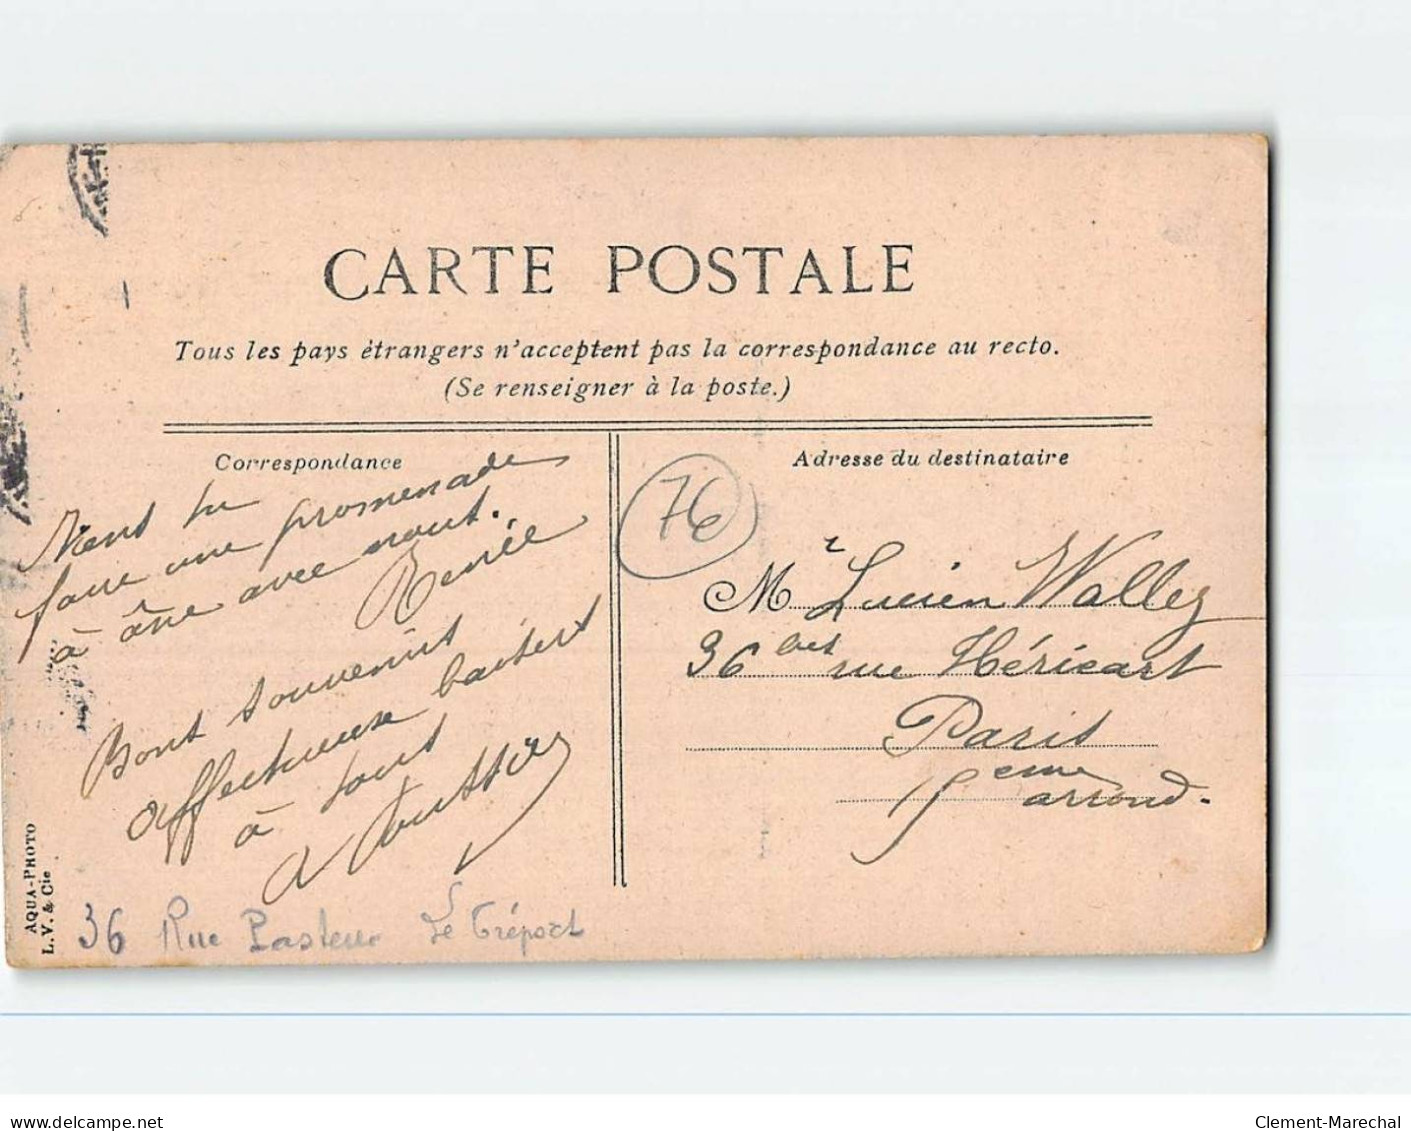 CARTE POSTALE
Tous les pays étrangers n'acceptent pas la correspondance au recto.
(Se renseigner à la poste.)
Correspondance
Viens tu
faire une promenade
à âne avec nous.
Renée
Bons souvenirs
affectueux baisers
à tous
Adresse du destinataire
76
Mr Lucien Wallez
36 bis rue Héricart
Paris
15eme
arrond.
AQUA-PHOTO
L. V. & Cie
36 Rue Pasteur Le Tréport
www.delcampe.net
Clement-Marechal